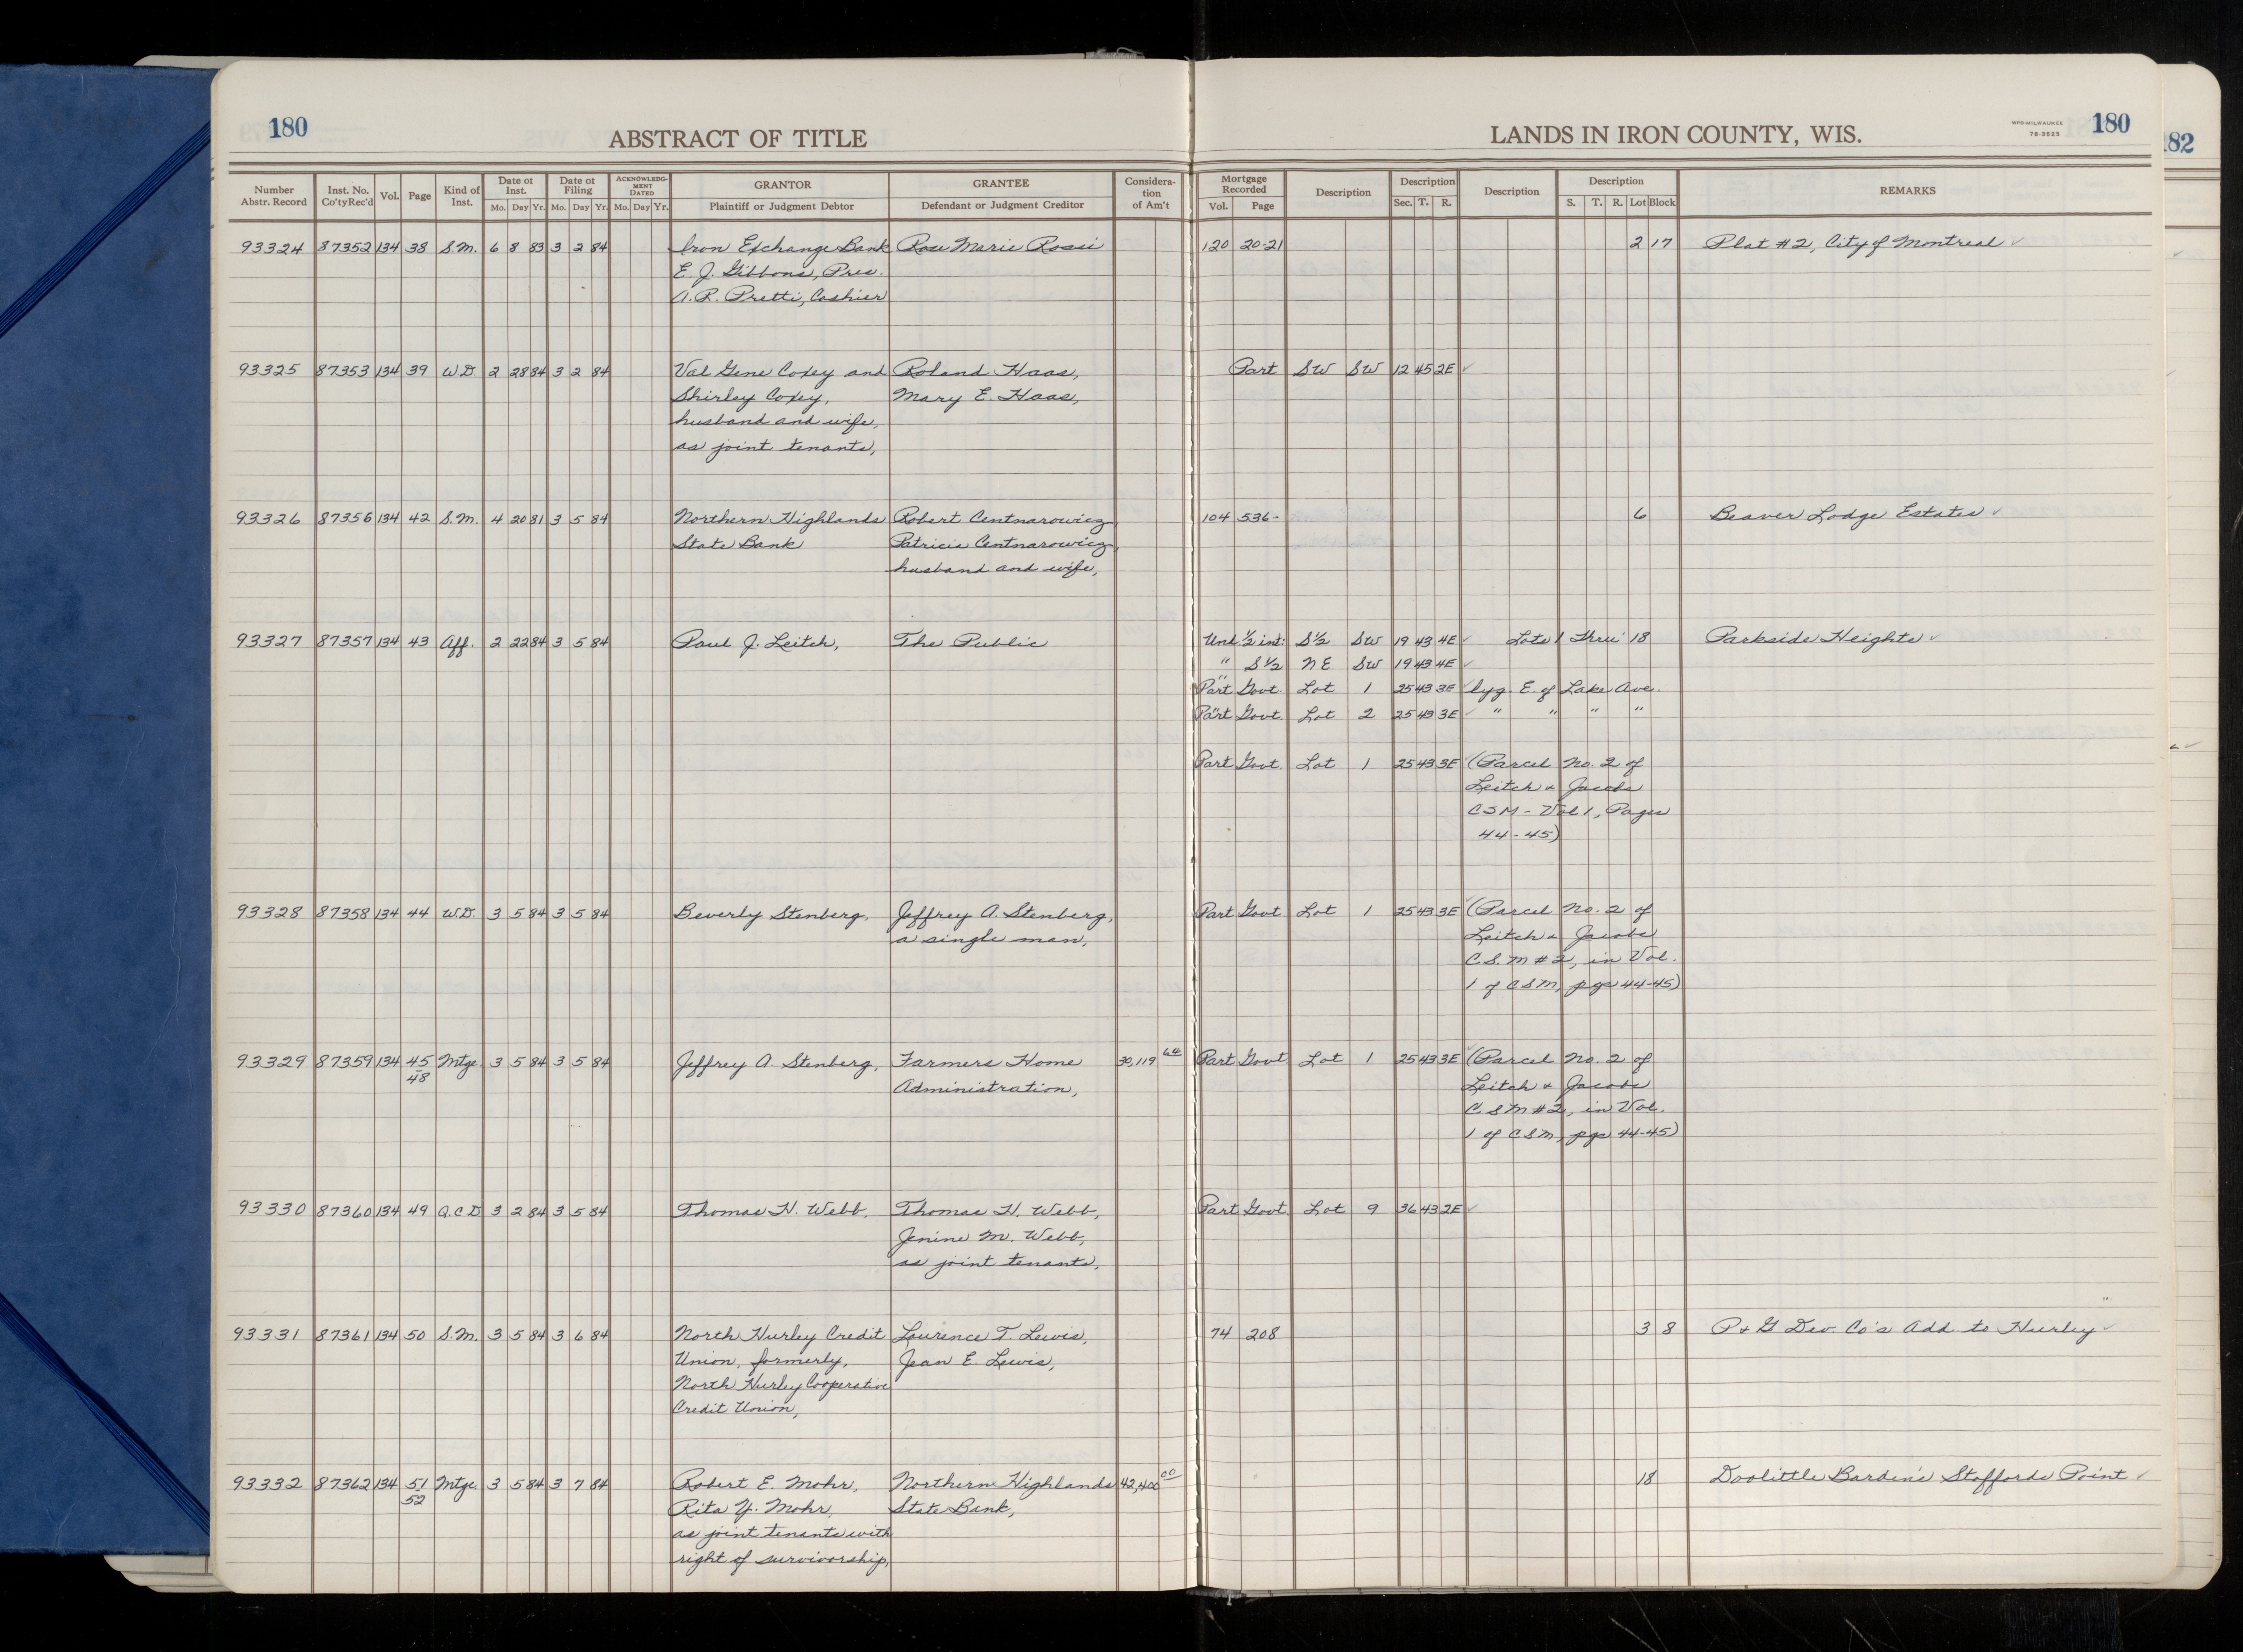 180
ABSTRACT OF TITLE
LANDS IN IRON COUNTY, WIS.
WPB-MILWAUKEE
78-3525
180
182
Number Abstr. Record | Inst. No. Co'ty Rec'd | Vol. | Page | Kind of Inst. | Date of Inst. Mo. Day Yr. | Date of Filing Mo. Day Yr. | ACKNOWLEDGMENT DATED Mo. Day Yr. | GRANTOR Plaintiff or Judgment Debtor | GRANTEE Defendant or Judgment Creditor | Consideration of Am't | Mortgage Recorded Vol. Page | Description | Description Sec. T. R. | Description | Description S. T. R. Lot Block | REMARKS
93324 87352 134 38 S.M. 6 8 83 3 2 84 Iron Exchange Bank Rose Marie Rossi 120 20-21 2 17 Plat #2, City of Montreal ✓
E. J. Gibbons, Pres.
A. R. Pretti, Cashier
93325 87353 134 39 WD 2 28 84 3 2 84 Val Gene Coxey and Roland Haas, Part SW SW 12 45 2E ✓
Shirley Coxey, Mary E. Haas,
husband and wife,
as joint tenants,
93326 87356 134 42 S.M. 4 20 81 3 5 84 Northern Highlands Robert Centnarowicz 104 536- 6 Beaver Lodge Estates ✓
State Bank Patricia Centnarowicz,
husband and wife,
93327 87357 134 43 Aff. 2 22 84 3 5 84 Paul J. Leitch, The Public Und. 1/2 int: S1/2 SW 19 43 4E ✓ Lots 1 Thru 18 Parkside Heights ✓
" S1/2 NE SW 19 43 4E ✓
" Part Govt. Lot 1 25 43 3E ✓ lyg. E. of Lake Ave.
" Part Govt. Lot 2 25 43 3E ✓ " " " "
Part Govt. Lot 1 25 43 3E (Parcel No. 2 of
Leitch & Jacobs
CSM - Vol 1, Pages
44-45)
93328 87358 134 44 W.D. 3 5 84 3 5 84 Beverly Stenberg, Jeffrey A. Stenberg, Part Govt Lot 1 25 43 3E ✓ (Parcel No. 2 of
a single man, Leitch & Jacobs
C.S.M #2, in Vol.
1 of CSM, pgs 44-45)
93329 87359 134 45 Mtge. 3 5 84 3 5 84 Jeffrey A. Stenberg, Farmers Home 30,119 64 Part Govt Lot 1 25 43 3E ✓ (Parcel No. 2 of
48 Administration, Leitch & Jacobs
C.SM #2, in Vol.
1 of CSM, pgs 44-45)
93330 87360 134 49 Q.C.D. 3 2 84 3 5 84 Thomas H. Webb, Thomas H. Webb, Part Govt. Lot 9 36 43 2E ✓
Jenine M. Webb,
as joint tenants,
93331 87361 134 50 S.M. 3 5 84 3 6 84 North Hurley Credit Laurence T. Lewis, 74 208 3 8 P & G Dev. Co's Add. to Hurley ✓
Union, formerly, Jean E. Lewis,
North Hurley Cooperative
Credit Union,
93332 87362 134 51 Mtge. 3 5 84 3 7 84 Robert E. Mohr, Northern Highlands 42,400 00 18 Doolittle Barden's Staffords Point ✓
52 Rita Y. Mohr, State Bank,
as joint tenants with
right of survivorship,